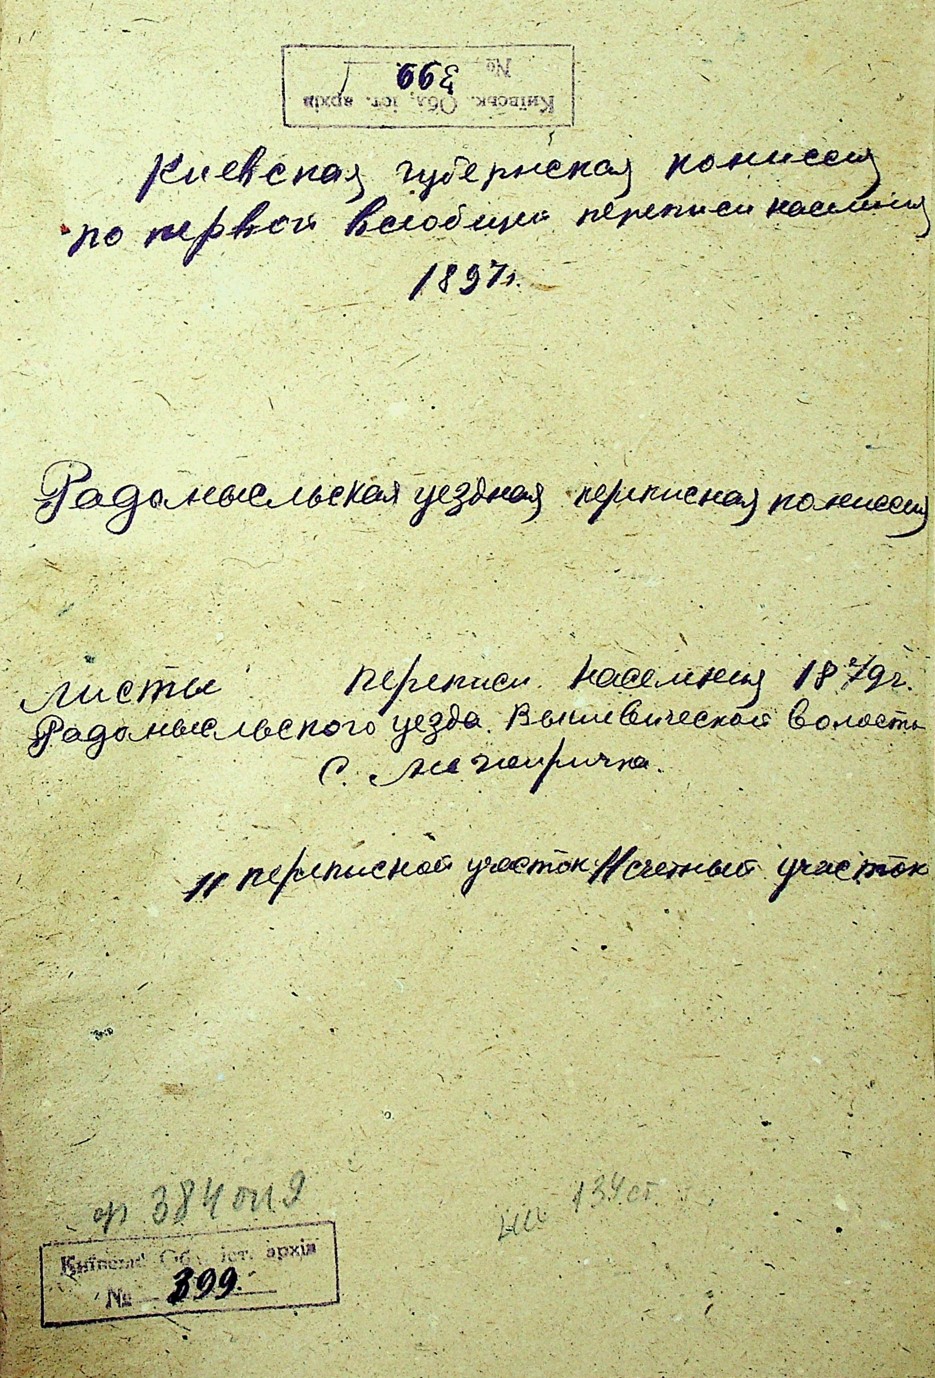 Київськ. Обл. іст. архів
№ 399
Киевская губернская комиссия
по первой всеобщей переписи населения
1897г.
Радомысльская уездная переписная комиссия
Листы переписи населения 1879г.
Радомысльского уезда Вышевической волости
с. Межирички.
11 переписной участок 11 счетный участок
ф 384 оп 9
на 134 ст.
Київськ. Обл. іст. архів
№ 399.